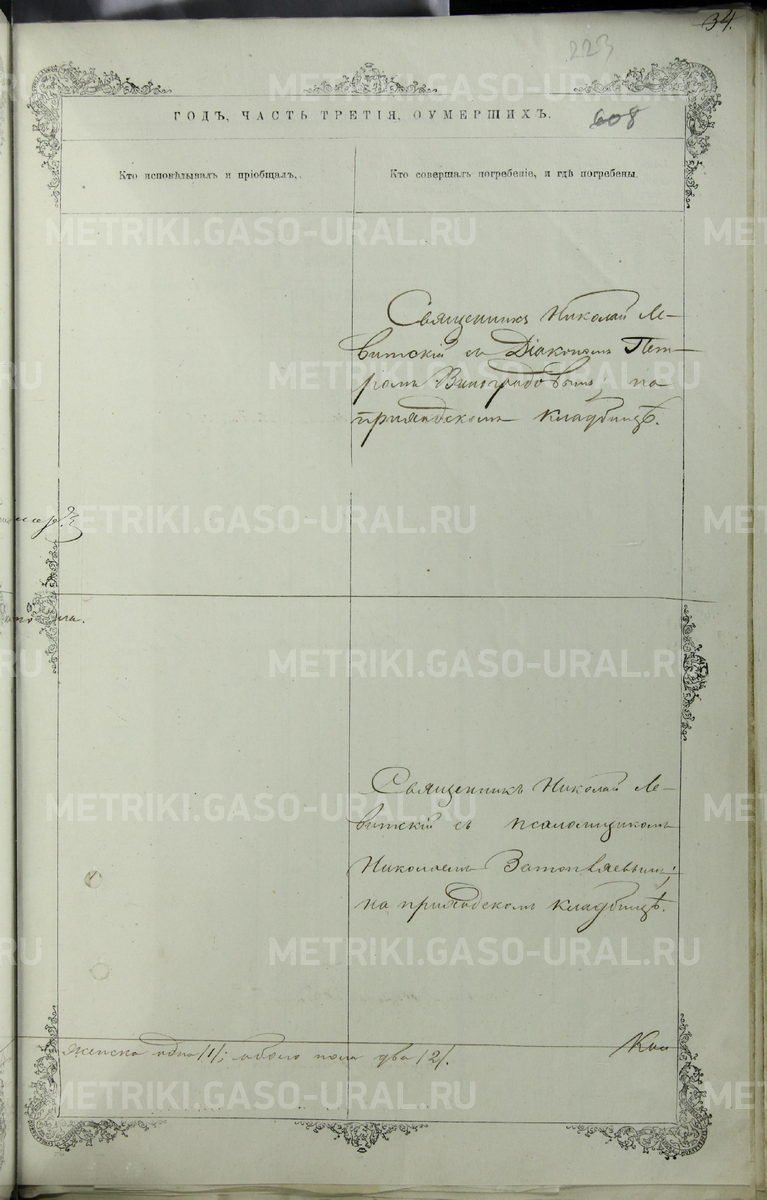 34.
223
608
ГОДЪ, ЧАСТЬ ТРЕТІЯ, ОУМЕРШИХЪ.
Кто исповѣдывалъ и пріобщалъ.
Кто совершалъ погребеніе, и гдѣ погребены.
Священникъ Николай Ле-
витскій съ Діакономъ Пет-
ромъ Виноградовымъ; на
приходскомъ кладбищѣ.
Священникъ Николай Ле-
витскій съ псаломщикомъ
Николаемъ
на приходскомъ кладбищѣ.
женска одна /1/; обоего пола два /2/.
METRIKI.GASO-URAL.RU